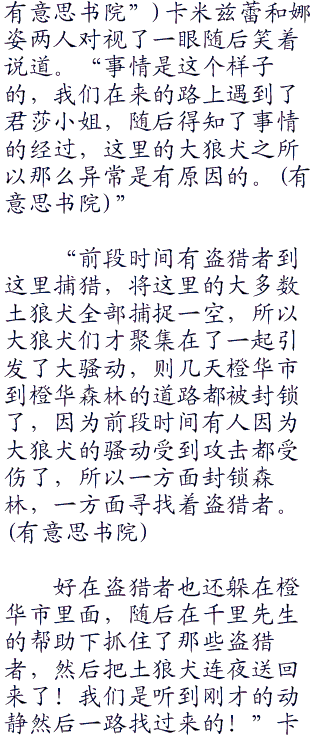 有意思书院”)卡米兹蕾和娜
姿两人对视了一眼随后笑着
说道。“事情是这个样子
的，我们在来的路上遇到了
君莎小姐，随后得知了事情
的经过，这里的大狼犬之所
以那么异常是有原因的。(有
意思书院)”
“前段时间有盗猎者到
这里捕猎，将这里的大多数
土狼犬全部捕捉一空，所以
大狼犬们才聚集在了一起引
发了大骚动，则几天橙华市
到橙华森林的道路都被封锁
了，因为前段时间有人因为
大狼犬的骚动受到攻击都受
伤了，所以一方面封锁森
林，一方面寻找着盗猎者。
(有意思书院)
好在盗猎者也还躲在橙
华市里面，随后在千里先生
的帮助下抓住了那些盗猎
者，然后把土狼犬连夜送回
来了！我们是听到刚才的动
静然后一路找过来的！”卡